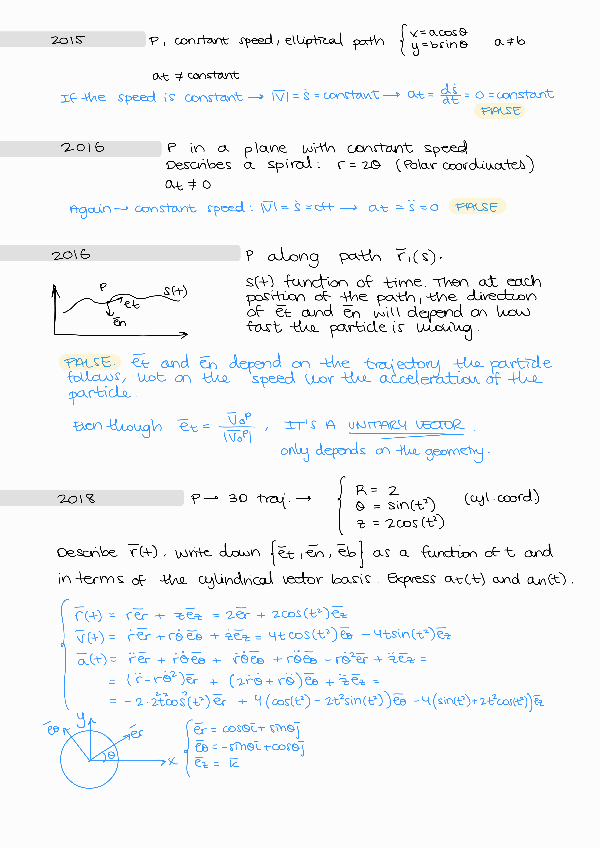 2015 P, constant speed, elliptical path { x = a cosθ
y = b sinθ a ≠ b
at ≠ constant
If the speed is constant → |v̄| = ṡ = constant → at = dṡ/dt = 0 = constant
FALSE
2016 P in a plane with constant speed
Describes a spiral: r = 2θ (Polar coordinates)
at ≠ 0
Again → constant speed: |v̄| = ṡ = ctt → at = s̈ = 0 FALSE
2016 P along path r̄₁(s).
P s(t)
ēt
ēn
s(t) function of time. Then at each
position of the path, the direction
of ēt and ēn will depend on how
fast the particle is moving.
FALSE. ēt and ēn depend on the trajectory the particle
follows, not on the speed nor the acceleration of the
particle.
Even though ēt = v̄₀ᴾ/|v̄₀ᴾ| , IT'S A UNITARY VECTOR.
only depends on the geometry.
2018 P → 3D traj. → { R = 2
θ = sin(t²) (cyl. coord.)
z = 2cos(t²)
Describe r̄(t). Write down {ēt, ēn, ēb} as a function of t and
in terms of the cylindrical vector basis. Express at(t) and an(t).
r̄(t) = rēr + zēz = 2ēr + 2cos(t²)ēz
v̄(t) = ṙēr + rθ̇ēθ + żēz = 4tcos(t²)ēθ - 4tsin(t²)ēz
ā(t) = r̈ēr + ṙθ̇ēθ + ṙθ̇ēθ + rθ̈ēθ - rθ̇²ēr + z̈ēz =
= (r̈ - rθ̇²)ēr + (2ṙθ̇ + rθ̈)ēθ + z̈ēz =
= -2·2²t²cos²(t²)ēr + 4(cos(t²) - 2t²sin(t²))ēθ - 4(sin(t²) + 2t²cos(t²))ēz
ēθ y ēr
θ x
ēr = cosθī + sinθj̄
ēθ = -sinθī + cosθj̄
ēz = k̄